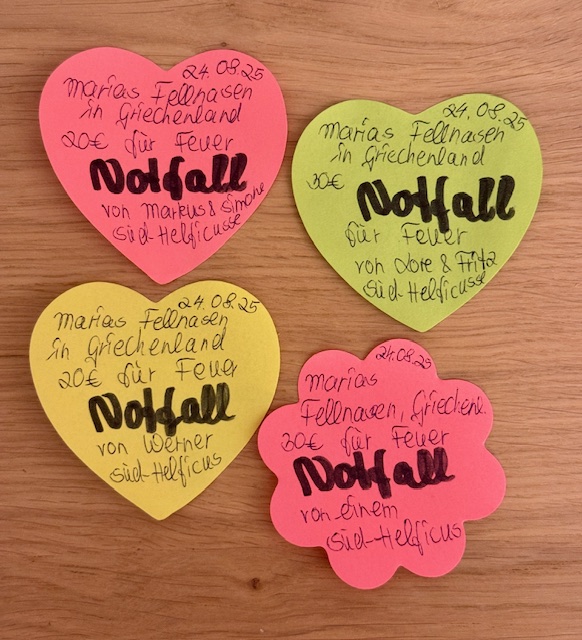 24.08.25
Marias Fellnasen
in Griechenland
20€ für Feuer
Notfall
von Markus & Simone
Süd-Helficusse
24.08.25
Marias Fellnasen
in Griechenland
30€
Notfall
für Feuer
von Lore & Fritz
Süd-Helficusse
24.08.25
Marias Fellnasen
in Griechenland
20€ für Feuer
Notfall
von Werner
Süd-Helficus
24.08.25
Marias
Fellnasen, Griechenl.
30€ für Feuer
Notfall
von einem
Süd-Helficus